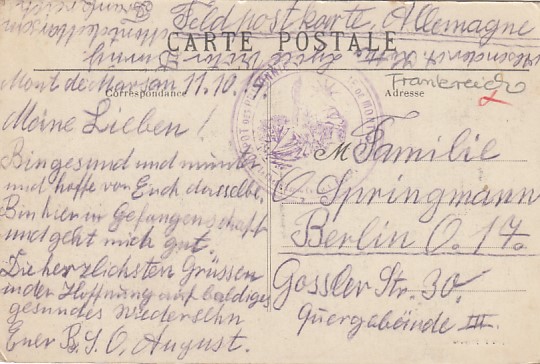 Feldpostkarte, Allemagne
CARTE POSTALE
Mont de Marsan 11.10.
Frankreich
Correspondance
Adresse
Meine Lieben!
Bin gesund und munter
und hoffe von Euch dasselbe.
Bin hier in Gefangenschaft
und geht mich gut.
Die herzlichsten Grüssen
in der Hoffnung auf baldiges
gesundes Wiedersehn
Euer B. S. O. August.
M Familie
O. Springmann
Berlin O. 17.
Gossler Str. 30.
Quergebäinde III.